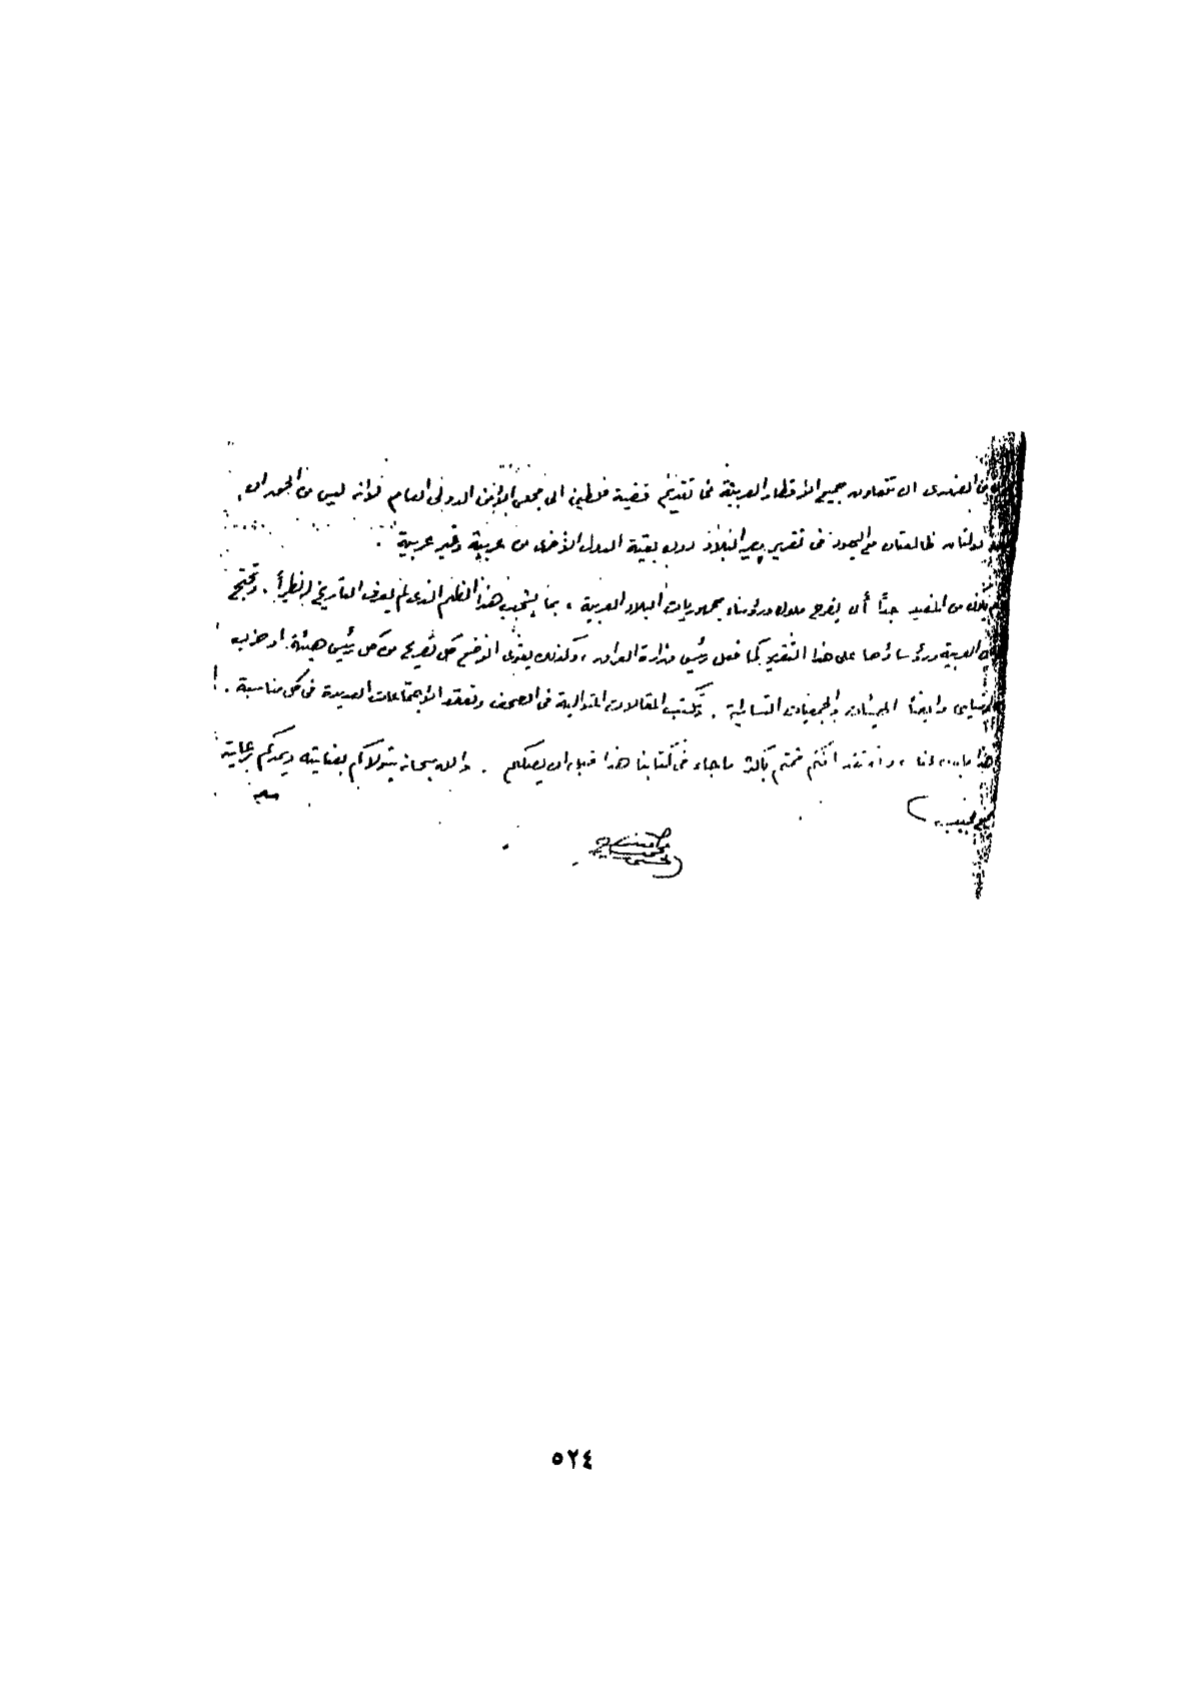 من الضروري ان تتعاون جميع الأقطار العربية في تقديم قضية فلسطين الى مجلس الأمن الدولي العام فإنه ليس من الجور ان
دولتان ظالمتان مع اليهود في تقرير مصير البلاد دون بقية الدول الأخرى من عربية وغير عربية .
من المفيد جداً أن يصرح ملوك ورؤساء جمهوريات البلاد العربية ، بما يشجب هذا الظلم الذي لم يعرف التاريخ له نظيراً . وتحتج
العربية ورؤساؤها على هذا التقرير كما فعل رئيس وزارة العراق ، وكذلك يقوي الوضع كل تصريح من كل رئيس هيئة او حزب
سياسي وايضاً الهيئات والجمعيات النسائية . وتكتب المقالات المتوالية في الصحف وتعقد الاجتماعات العديدة في كل مناسبة .
هذا ما ، نعتقد انكم قمتم بأكثر ما جاء في كتابنا هذا قبل ان يصلكم . والله سبحانه يتولاكم بعنايته ويمدكم برعايته
٥٢٤